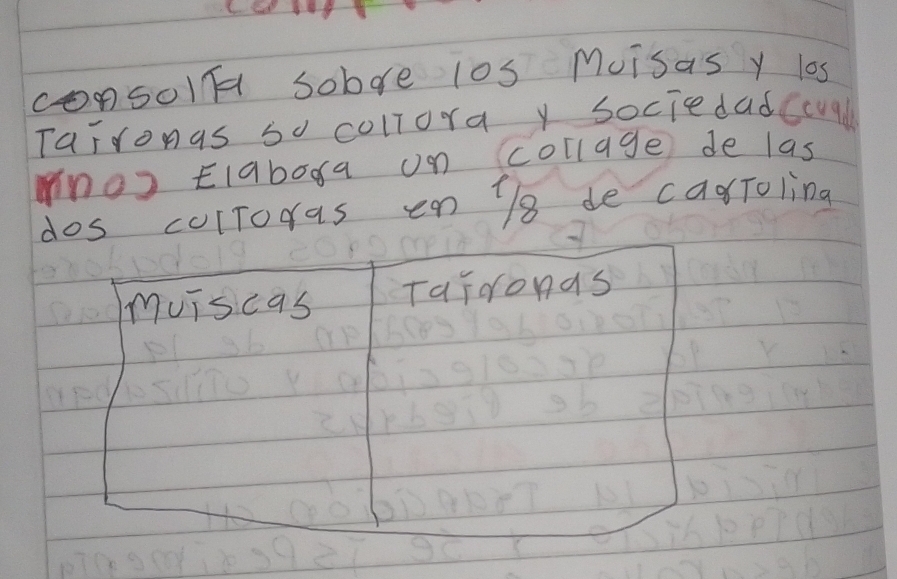 consolta sobre los Muisas y los
Taironas su coltora y sociedad
Elabora un collage de las
dos coltoras en 1/8 de cartolina
Muiscas
Taironas